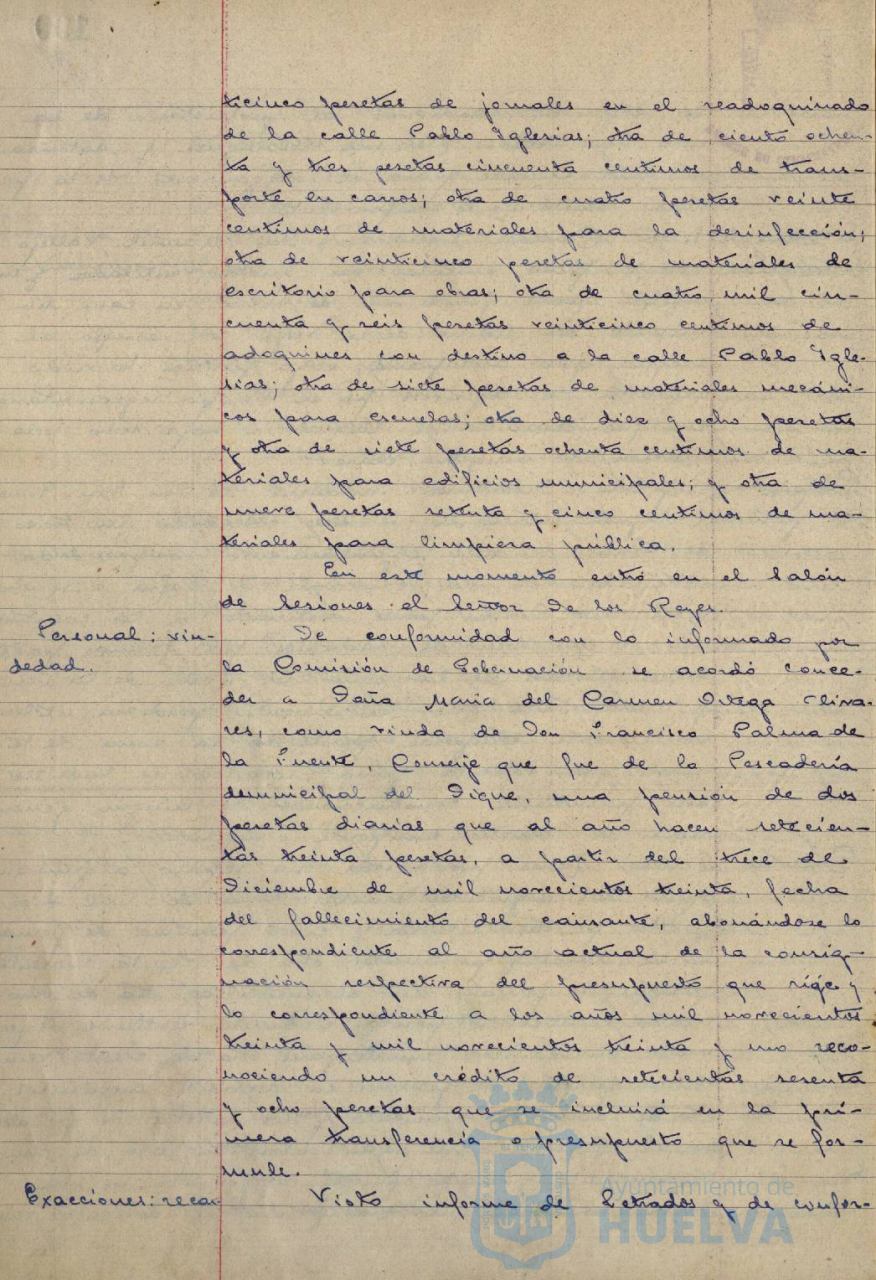 ticinco pesetas de jornales en el readoquinado
de la calle Pablo Iglesias; otra de ciento ochen-
ta y tres pesetas cincuenta centimos de trans-
porte en carros; otra de cuatro pesetas veinte
centimos de materiales para la desinfección;
otra de veinticinco pesetas de materiales de
escritorio para obras; otra de cuatro mil cin-
cuenta y seis pesetas veinticinco centimos de
adoquines con destino a la calle Pablo Igle-
sias; otra de siete pesetas de materiales mecáni-
cos para escuelas; otra de diez y ocho pesetas
y otra de siete pesetas ochenta centimos de ma-
teriales para edificios municipales; y otra de
nueve pesetas setenta y cinco centimos de ma-
teriales para limpieza pública.
En este momento entró en el Salón
de Sesiones el Señor De los Reyes.
Personal: viu-
dedad.
De conformidad con lo informado por
la Comisión de Gobernación se acordó conce-
der a Doña María del Carmen Ortega Oliva-
res, como viuda de Don Francisco Palma de
la Fuente, Conserje que fue de la Pescadería
municipal del Dique, una pensión de dos
pesetas diarias que al año hacen setecien-
tas treinta pesetas, a partir del trece de
Diciembre de mil novecientos treinta, fecha
del fallecimiento del causante, abonándose lo
correspondiente al año actual de la consig-
nación respectiva del presupuesto que rige y
lo correspondiente a los años mil novecientos
treinta y mil novecientos treinta y uno reco-
nociendo un crédito de setecientas sesenta
y ocho pesetas que se incluirá en la pri-
mera transferencia o presupuesto que se for-
mule.
Exacciones: recar-
Visto informe de Letrados y de confor-
Ayuntamiento de
HUELVA